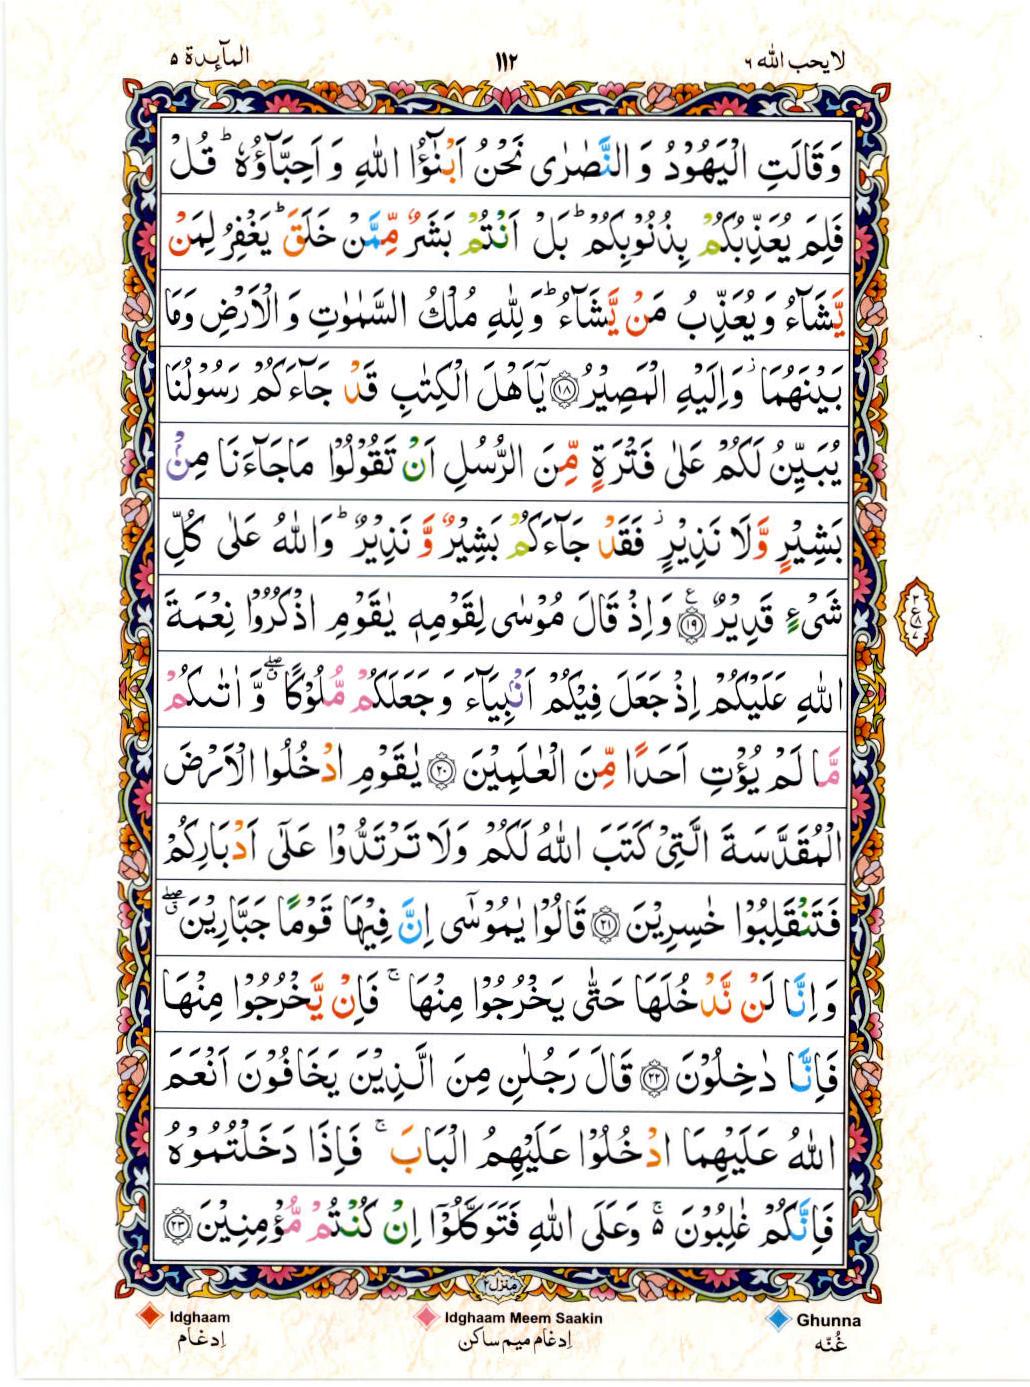 المآىِٕدة ۵
١١٢
لا يحب الله ٦
وَ قَالَتِ الْیَهُوْدُ وَ النَّصٰرٰى نَحْنُ اَبْنٰٓؤُا اللّٰهِ وَ اَحِبَّآؤُهٗ ؕ قُلْ
فَلِمَ یُعَذِّبُكُمْ بِذُنُوْبِكُمْ ؕ بَلْ اَنْتُمْ بَشَرٌ مِّمَّنْ خَلَقَ ؕ یَغْفِرُ لِمَنْ
یَّشَآءُ وَ یُعَذِّبُ مَنْ یَّشَآءُ ؕ وَ لِلّٰهِ مُلْكُ السَّمٰوٰتِ وَ الْاَرْضِ وَمَا
بَیْنَهُمَا ؗ وَ اِلَیْهِ الْمَصِیْرُ ﴿۱۸﴾ یٰۤاَهْلَ الْكِتٰبِ قَدْ جَآءَكُمْ رَسُوْلُنَا
یُبَیِّنُ لَكُمْ عَلٰى فَتْرَةٍ مِّنَ الرُّسُلِ اَنْ تَقُوْلُوْا مَا جَآءَنَا مِنْۢ
بَشِیْرٍ وَّ لَا نَذِیْرٍ ؗ فَقَدْ جَآءَكُمْ بَشِیْرٌ وَّ نَذِیْرٌ ؕ وَ اللّٰهُ عَلٰى كُلِّ
شَیْءٍ قَدِیْرٌ ﴿۱۹﴾ ع وَ اِذْ قَالَ مُوْسٰى لِقَوْمِهٖ یٰقَوْمِ اذْكُرُوْا نِعْمَةَ
اللّٰهِ عَلَیْكُمْ اِذْ جَعَلَ فِیْكُمْ اَنْۢبِیَآءَ وَ جَعَلَكُمْ مُّلُوْكًا ۗۖ وَّ اٰتٰىكُمْ
مَّا لَمْ یُؤْتِ اَحَدًا مِّنَ الْعٰلَمِیْنَ ﴿۲۰﴾ یٰقَوْمِ ادْخُلُوا الْاَرْضَ
الْمُقَدَّسَةَ الَّتِیْ كَتَبَ اللّٰهُ لَكُمْ وَ لَا تَرْتَدُّوْا عَلٰۤى اَدْبَارِكُمْ
فَتَنْقَلِبُوْا خٰسِرِیْنَ ﴿۲۱﴾ قَالُوْا یٰمُوْسٰۤى اِنَّ فِیْهَا قَوْمًا جَبَّارِیْنَ ۗۖ
وَ اِنَّا لَنْ نَّدْخُلَهَا حَتّٰى یَخْرُجُوْا مِنْهَا ۚ فَاِنْ یَّخْرُجُوْا مِنْهَا
فَاِنَّا دٰخِلُوْنَ ﴿۲۲﴾ قَالَ رَجُلٰنِ مِنَ الَّذِیْنَ یَخَافُوْنَ اَنْعَمَ
اللّٰهُ عَلَیْهِمَا ادْخُلُوْا عَلَیْهِمُ الْبَابَ ۚ فَاِذَا دَخَلْتُمُوْهُ
فَاِنَّكُمْ غٰلِبُوْنَ ۚ۬ وَ عَلَى اللّٰهِ فَتَوَكَّلُوْۤا اِنْ كُنْتُمْ مُّؤْمِنِیْنَ ﴿۲۳﴾
منزل ۲
Idghaam
Idghaam Meem Saakin
Ghunna
اِدغام
اِدغام ميم ساكن
غُنّه